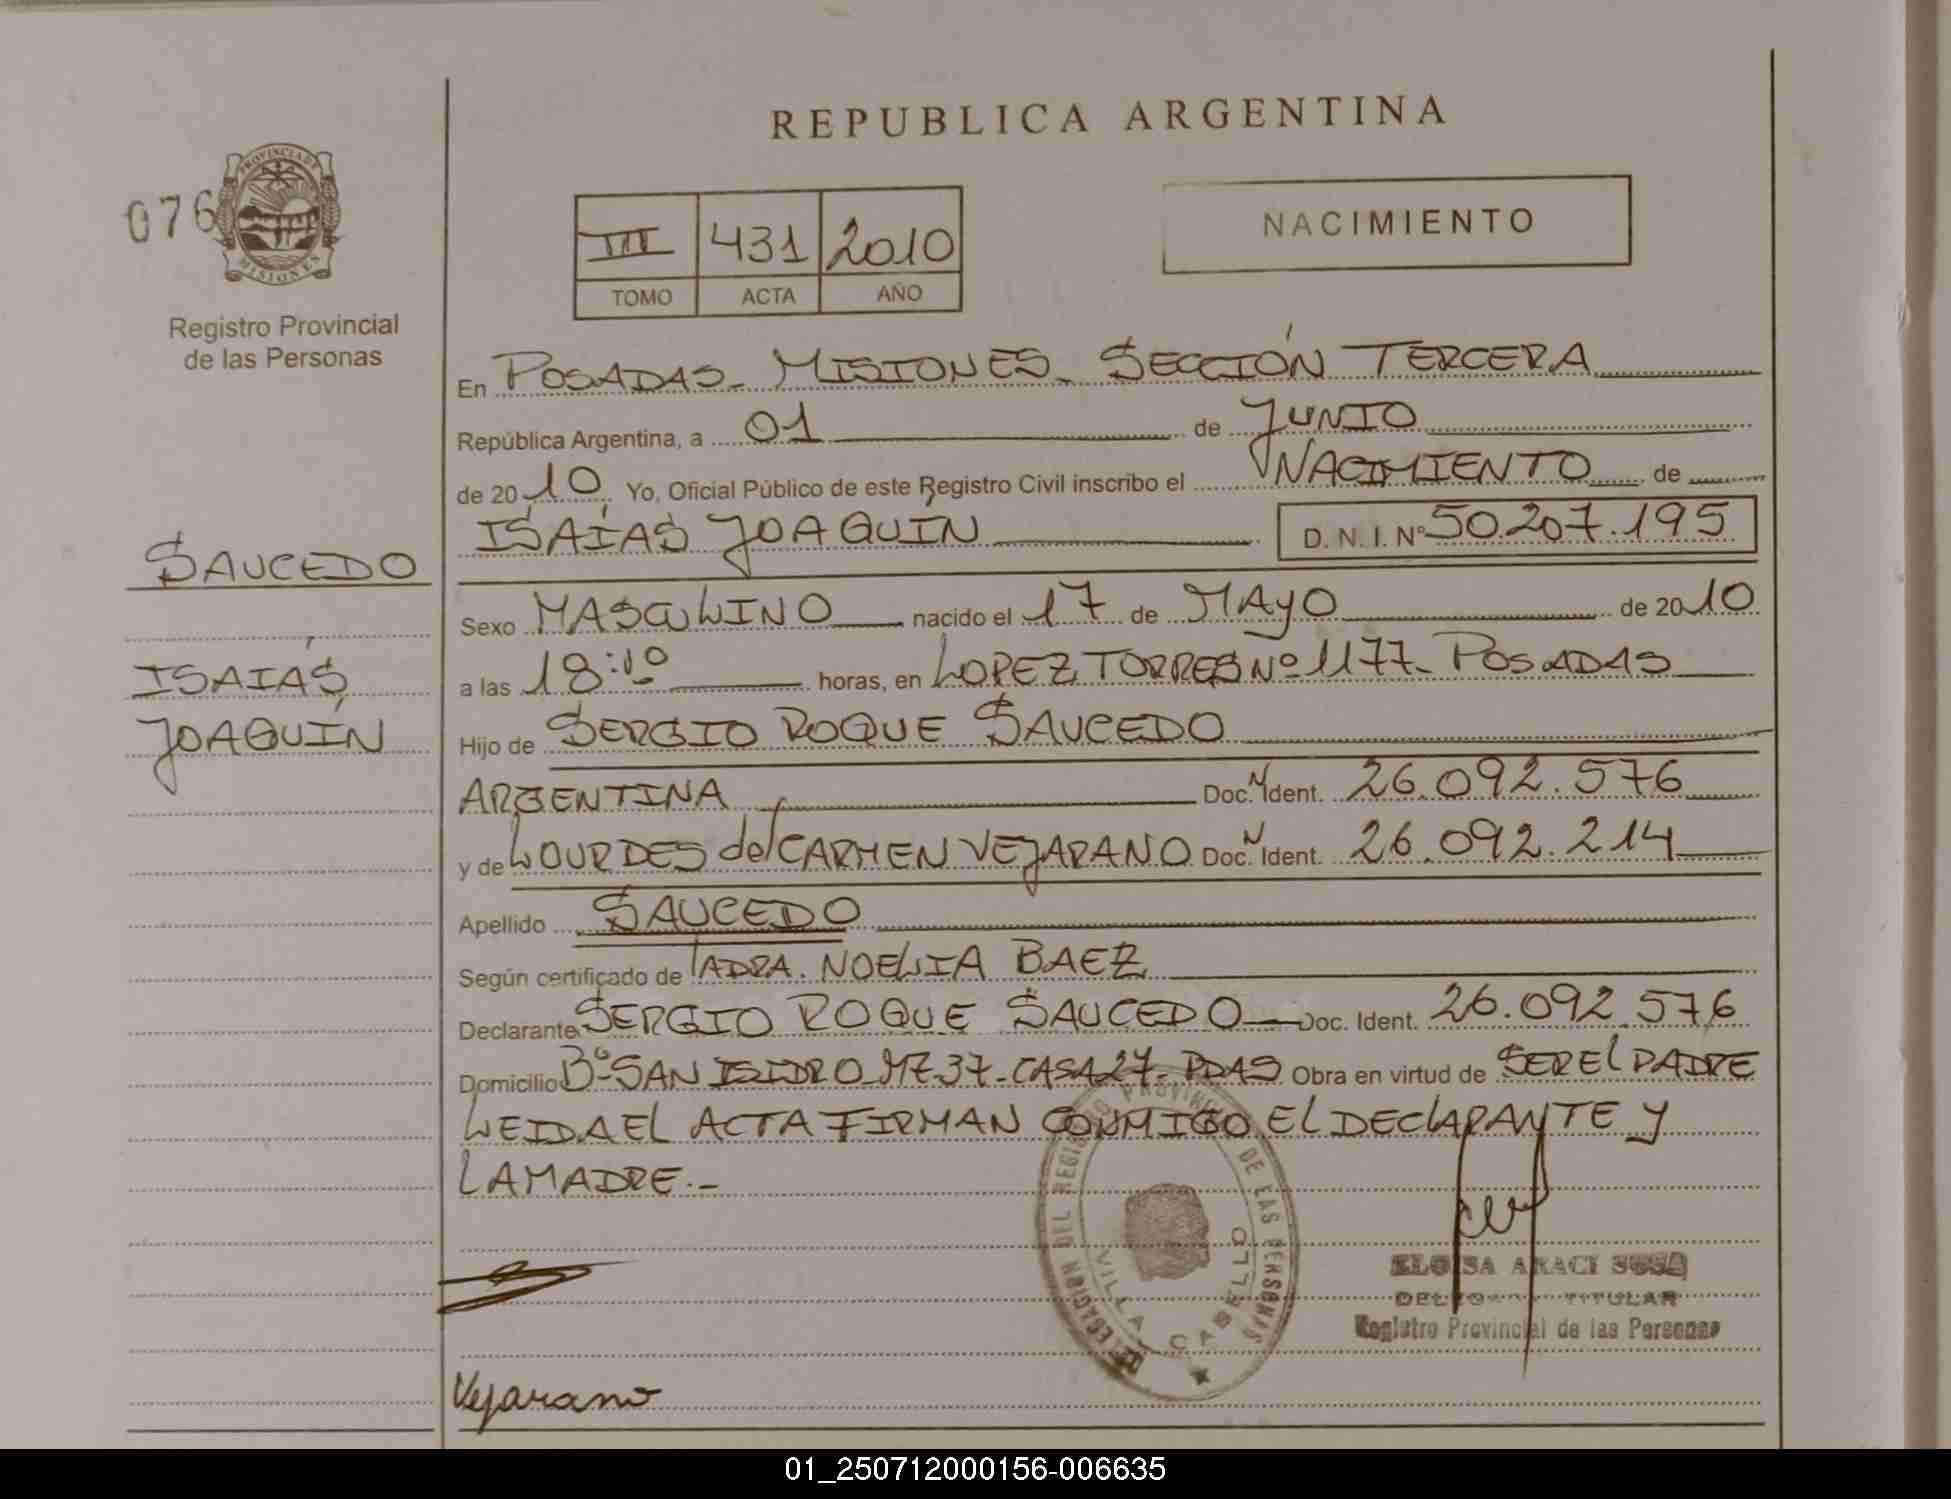 REPUBLICA ARGENTINA
076
PROVINCIA DE
MISIONES
Registro Provincial
de las Personas
III 431 2010
TOMO ACTA AÑO
NACIMIENTO
En POSADAS - MISIONES - SECCIÓN TERCERA
República Argentina, a 01 de JUNIO
de 2010 Yo, Oficial Público de este Registro Civil inscribo el NACIMIENTO de
ISAÍAS JOAQUÍN D. N. I. Nº 50.207.195
SAUCEDO
ISAIÁS
JOAQUÍN
Sexo MASCULINO nacido el 17 de MAYO de 2010
a las 18:10 horas, en LOPEZ TORRES Nº 1177 - POSADAS
Hijo de SERGIO ROQUE SAUCEDO
ARGENTINA Doc. N Ident. 26.092.576
y de LOURDES del CARMEN VEJARANO Doc. N Ident. 26.092.214
Apellido SAUCEDO
Según certificado de NOELIA BAEZ
Declarante SERGIO ROQUE SAUCEDO Doc. Ident. 26.092.576
Domicilio Bº SAN ISIDRO MZ 37 - CASA 27 - PDAS Obra en virtud de SER El PADRE
LEIDA El ACTA FIRMAN CONMIGO El DEClARANTE Y
LA MADRE.-
DELEGACION DEL REGISTRO PROVINCIAL DE LAS PERSONAS
VILLA CABELLO
ELOISA ARACI SOSA
DELEGADA TITULAR
Registro Provincial de las Personas
Vejarano
01_250712000156-006635